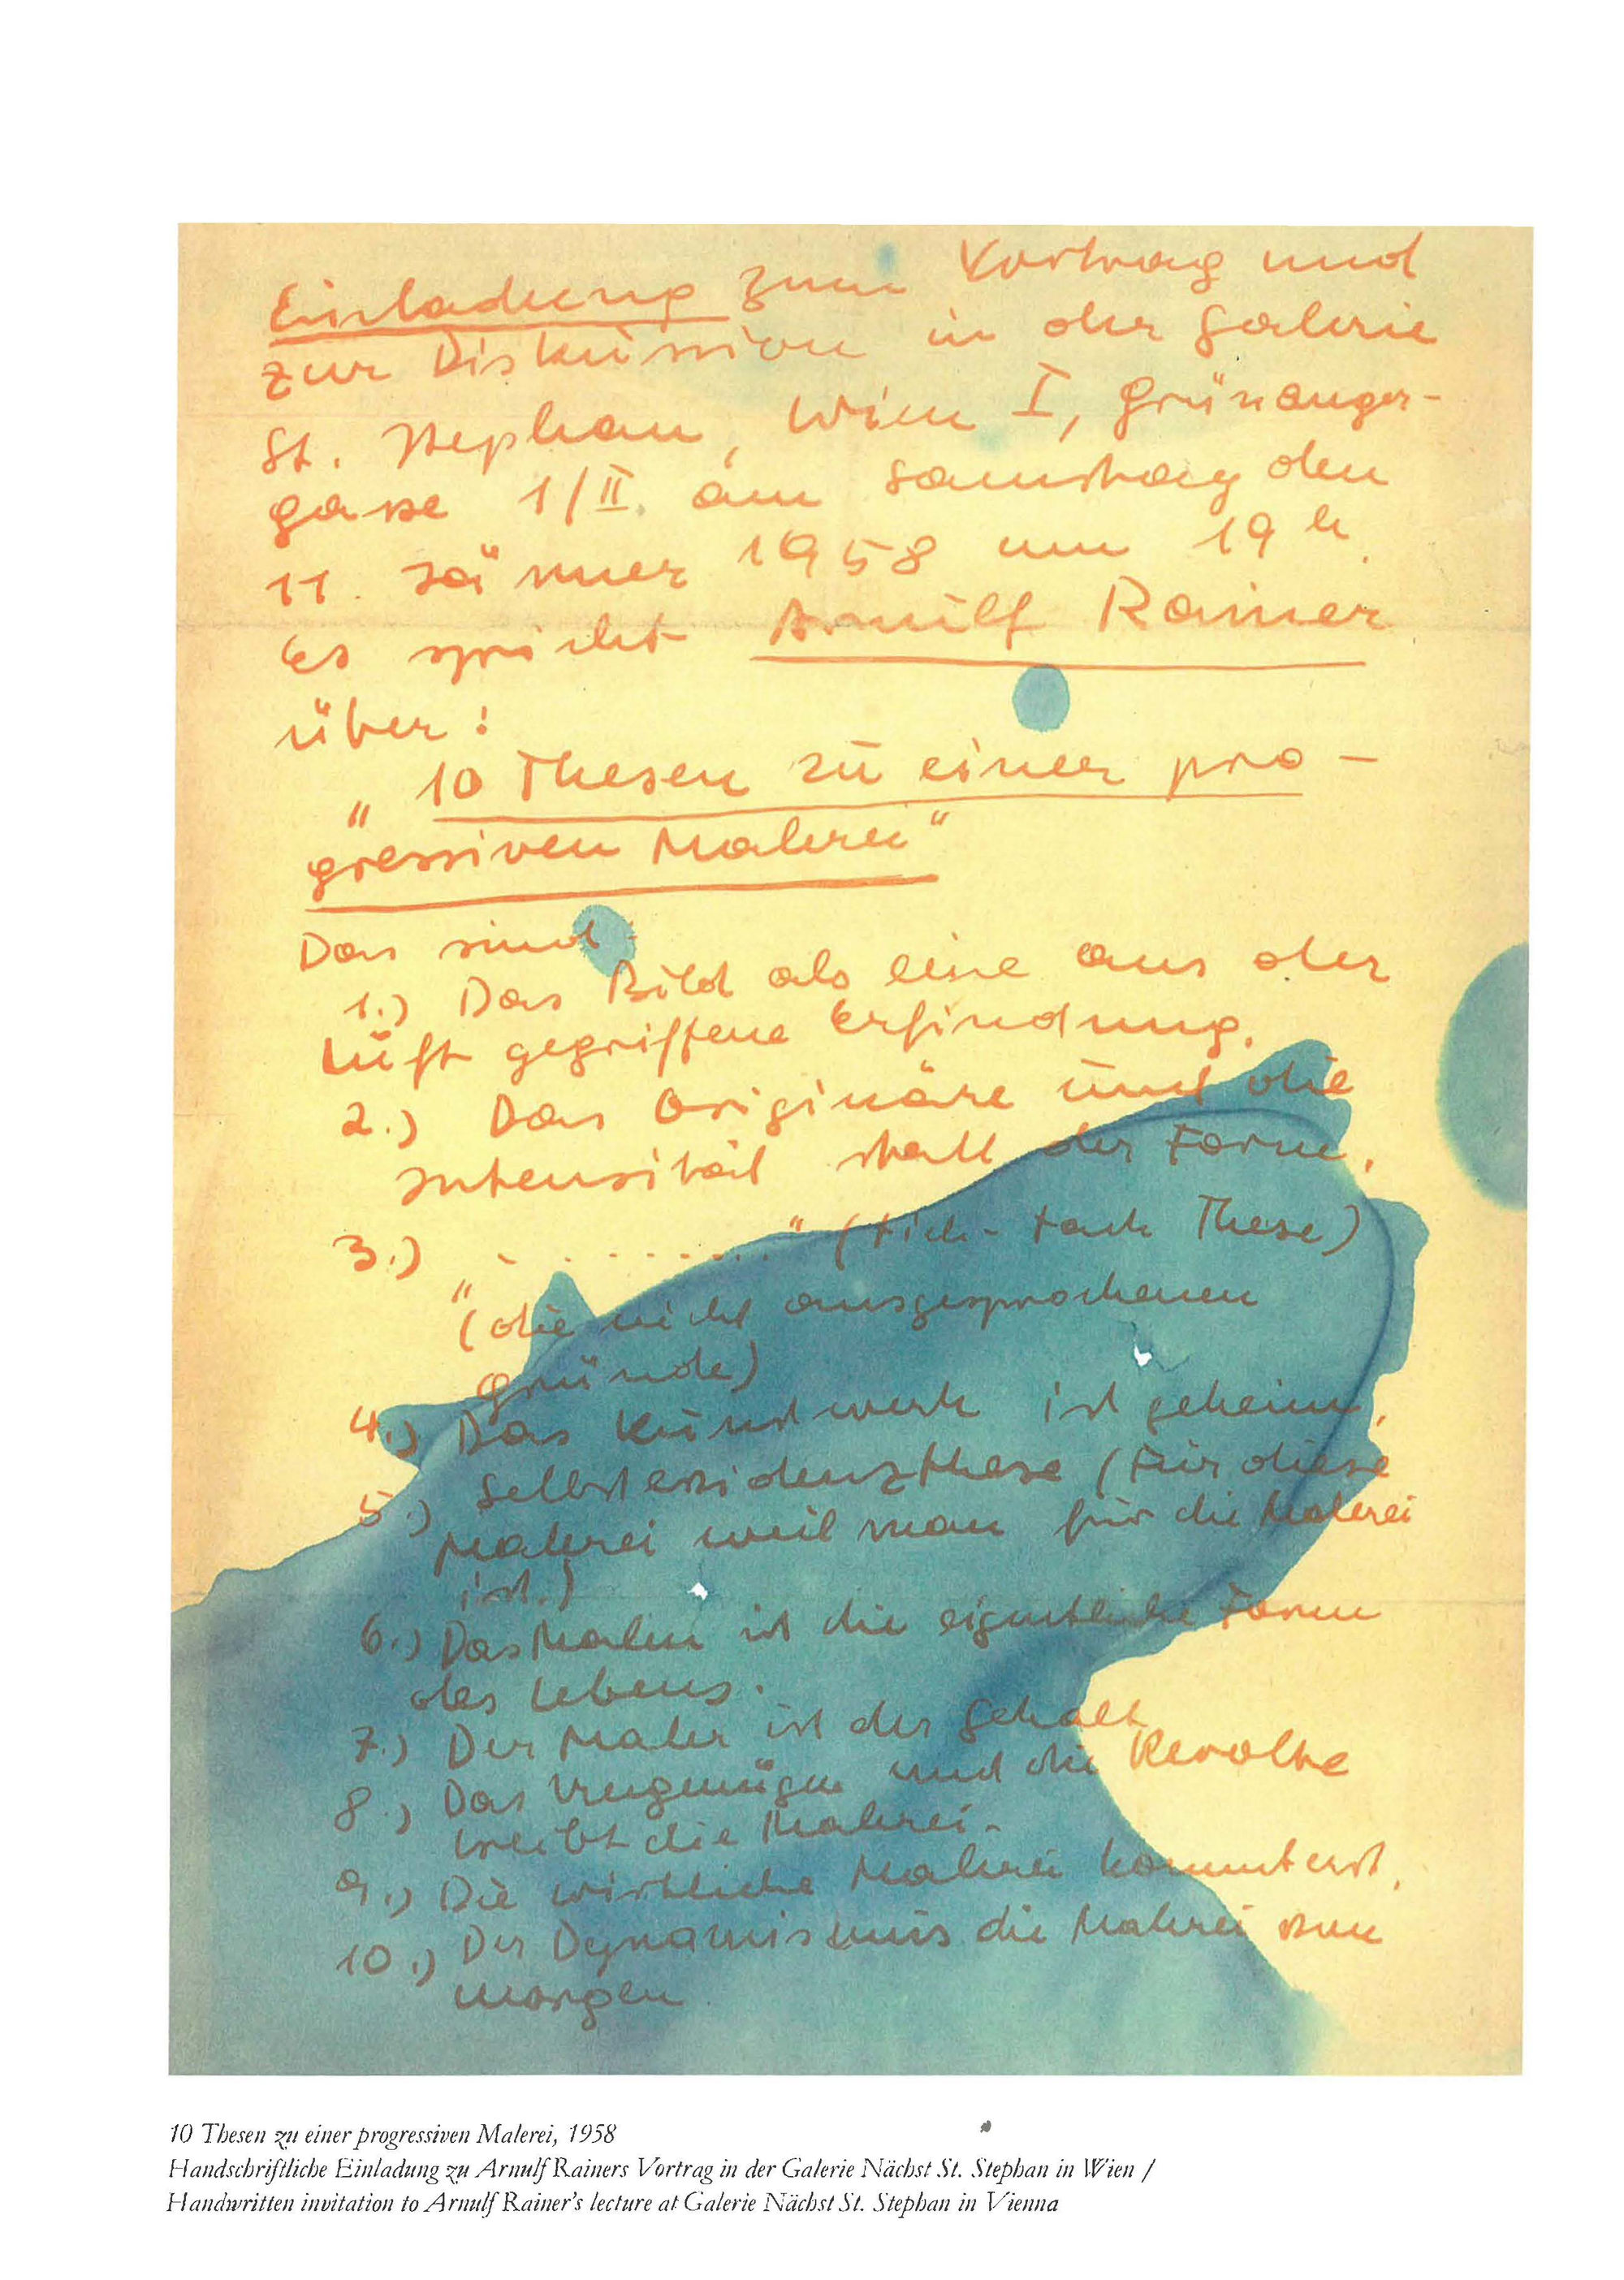 Einladung zum Vortrag und
zur Diskussion in der Galerie
St. Stephan, Wien I, Grünanger-
gasse 1/II. am Samstag den
11. Jänner 1958 um 19 h.
Es spricht Arnulf Rainer
über:
„10 Thesen zu einer pro-
gressiven Malerei“
Das sind
1.) Das Bild als eine aus der
Luft gegriffene Erfindung.
2.) Das Originäre und die
Intensität statt der Form.
3.) „.........“ (tick-tack These)
(die nicht ausgesprochenen
Gründe)
4.) Das Kunstwerk ist geheim.
5.) Selbstevidenzthese (Für diese
Malerei weil man für die Malerei
ist.)
6.) Das Malen ist die eigentliche Form
des Lebens.
7.) Der Maler ist der Gehalt
8.) Das Vergnügen und die Revolte
treibt die Malerei.
9.) Die wirkliche Malerei kommt erst.
10.) Der Dynamismus die Malerei von
morgen
10 Thesen zu einer progressiven Malerei, 1958
Handschriftliche Einladung zu Arnulf Rainers Vortrag in der Galerie Nächst St. Stephan in Wien /
Handwritten invitation to Arnulf Rainer's lecture at Galerie Nächst St. Stephan in Vienna